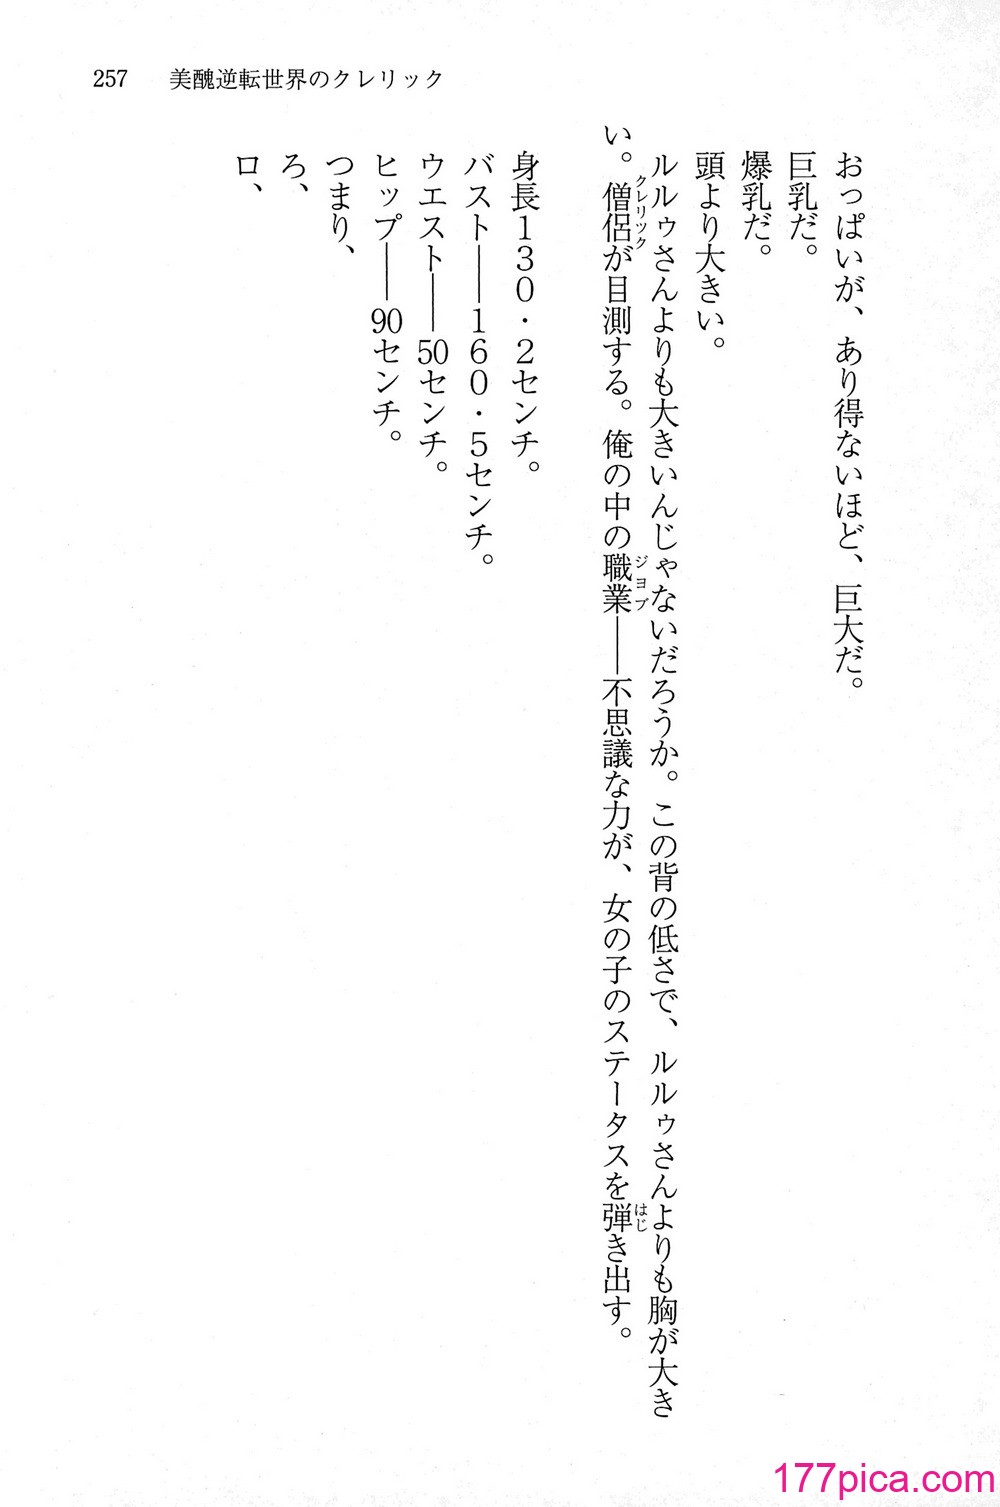 257 美醜逆転世界のクレリック
おっぱいが、あり得ないほど、巨大だ。
巨乳だ。
爆乳だ。
頭より大きい。
ルルゥさんよりも大きいんじゃないだろうか。この背の低さで、ルルゥさんよりも胸が大き
い。僧侶が目測する。俺の中の職業――不思議な力が、女の子のステータスを弾き出す。
クレリック
ジョブ
はじ
身長130・2センチ。
バスト――160・5センチ。
ウエスト――50センチ。
ヒップ――90センチ。
つまり、
ろ、
ロ、
177pica.com